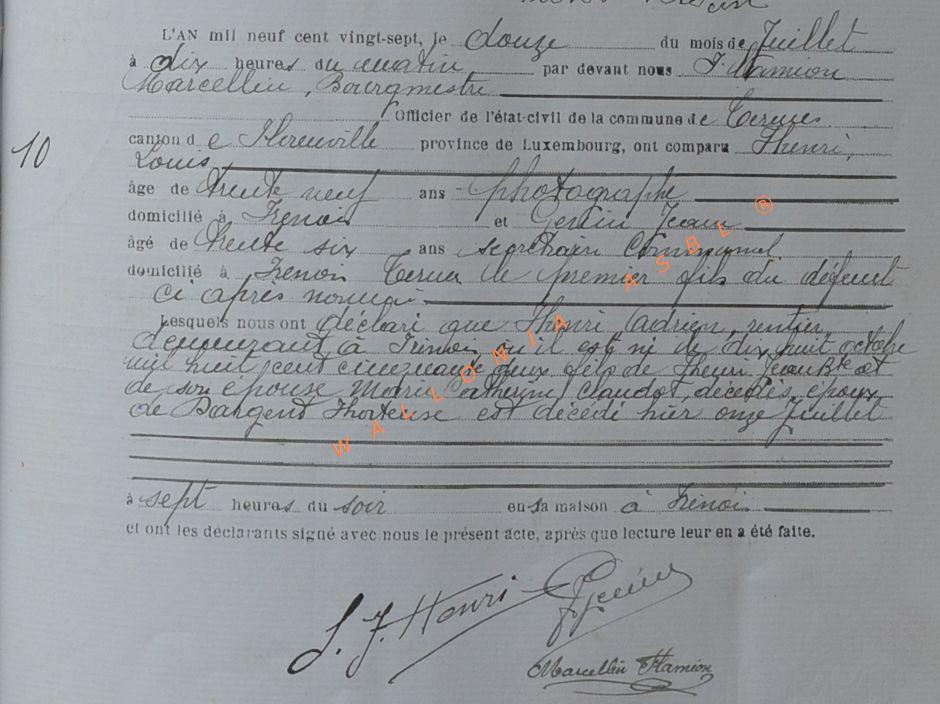 L'AN mil neuf cent vingt-sept, le douze du mois de Juillet
à dix heures du matin par devant nous J. Hamion
Marcellin, Bourgmestre
Officier de l'état-civil de la commune de Termes
canton de Florenville province de Luxembourg, ont comparu Henri,
Louis,
âgé de trente neuf ans photographe
domicilié à Frenois et Gerlin Jean
âgé de trente six ans secrétaire Communal
domicilié à Frenois Termes le premier fils du défunt
ci après nommé
Lesquels nous ont déclaré que Henri, Adrien, rentier,
demeurant à Frenois, où il est né le dix huit octobre
mil huit cent cinquante deux fils de Henri Jean Bte et
de son épouse Marie Catherine Claudot, décédés, époux
de Bargend Hortense est décédé hier onze juillet
à sept heures du soir en sa maison à Frénois
et ont les déclarants signé avec nous le présent acte, après que lecture leur en a été faite.
10
L. J. Henri
Marcellin Hamion
WALLONIA ASBL ®